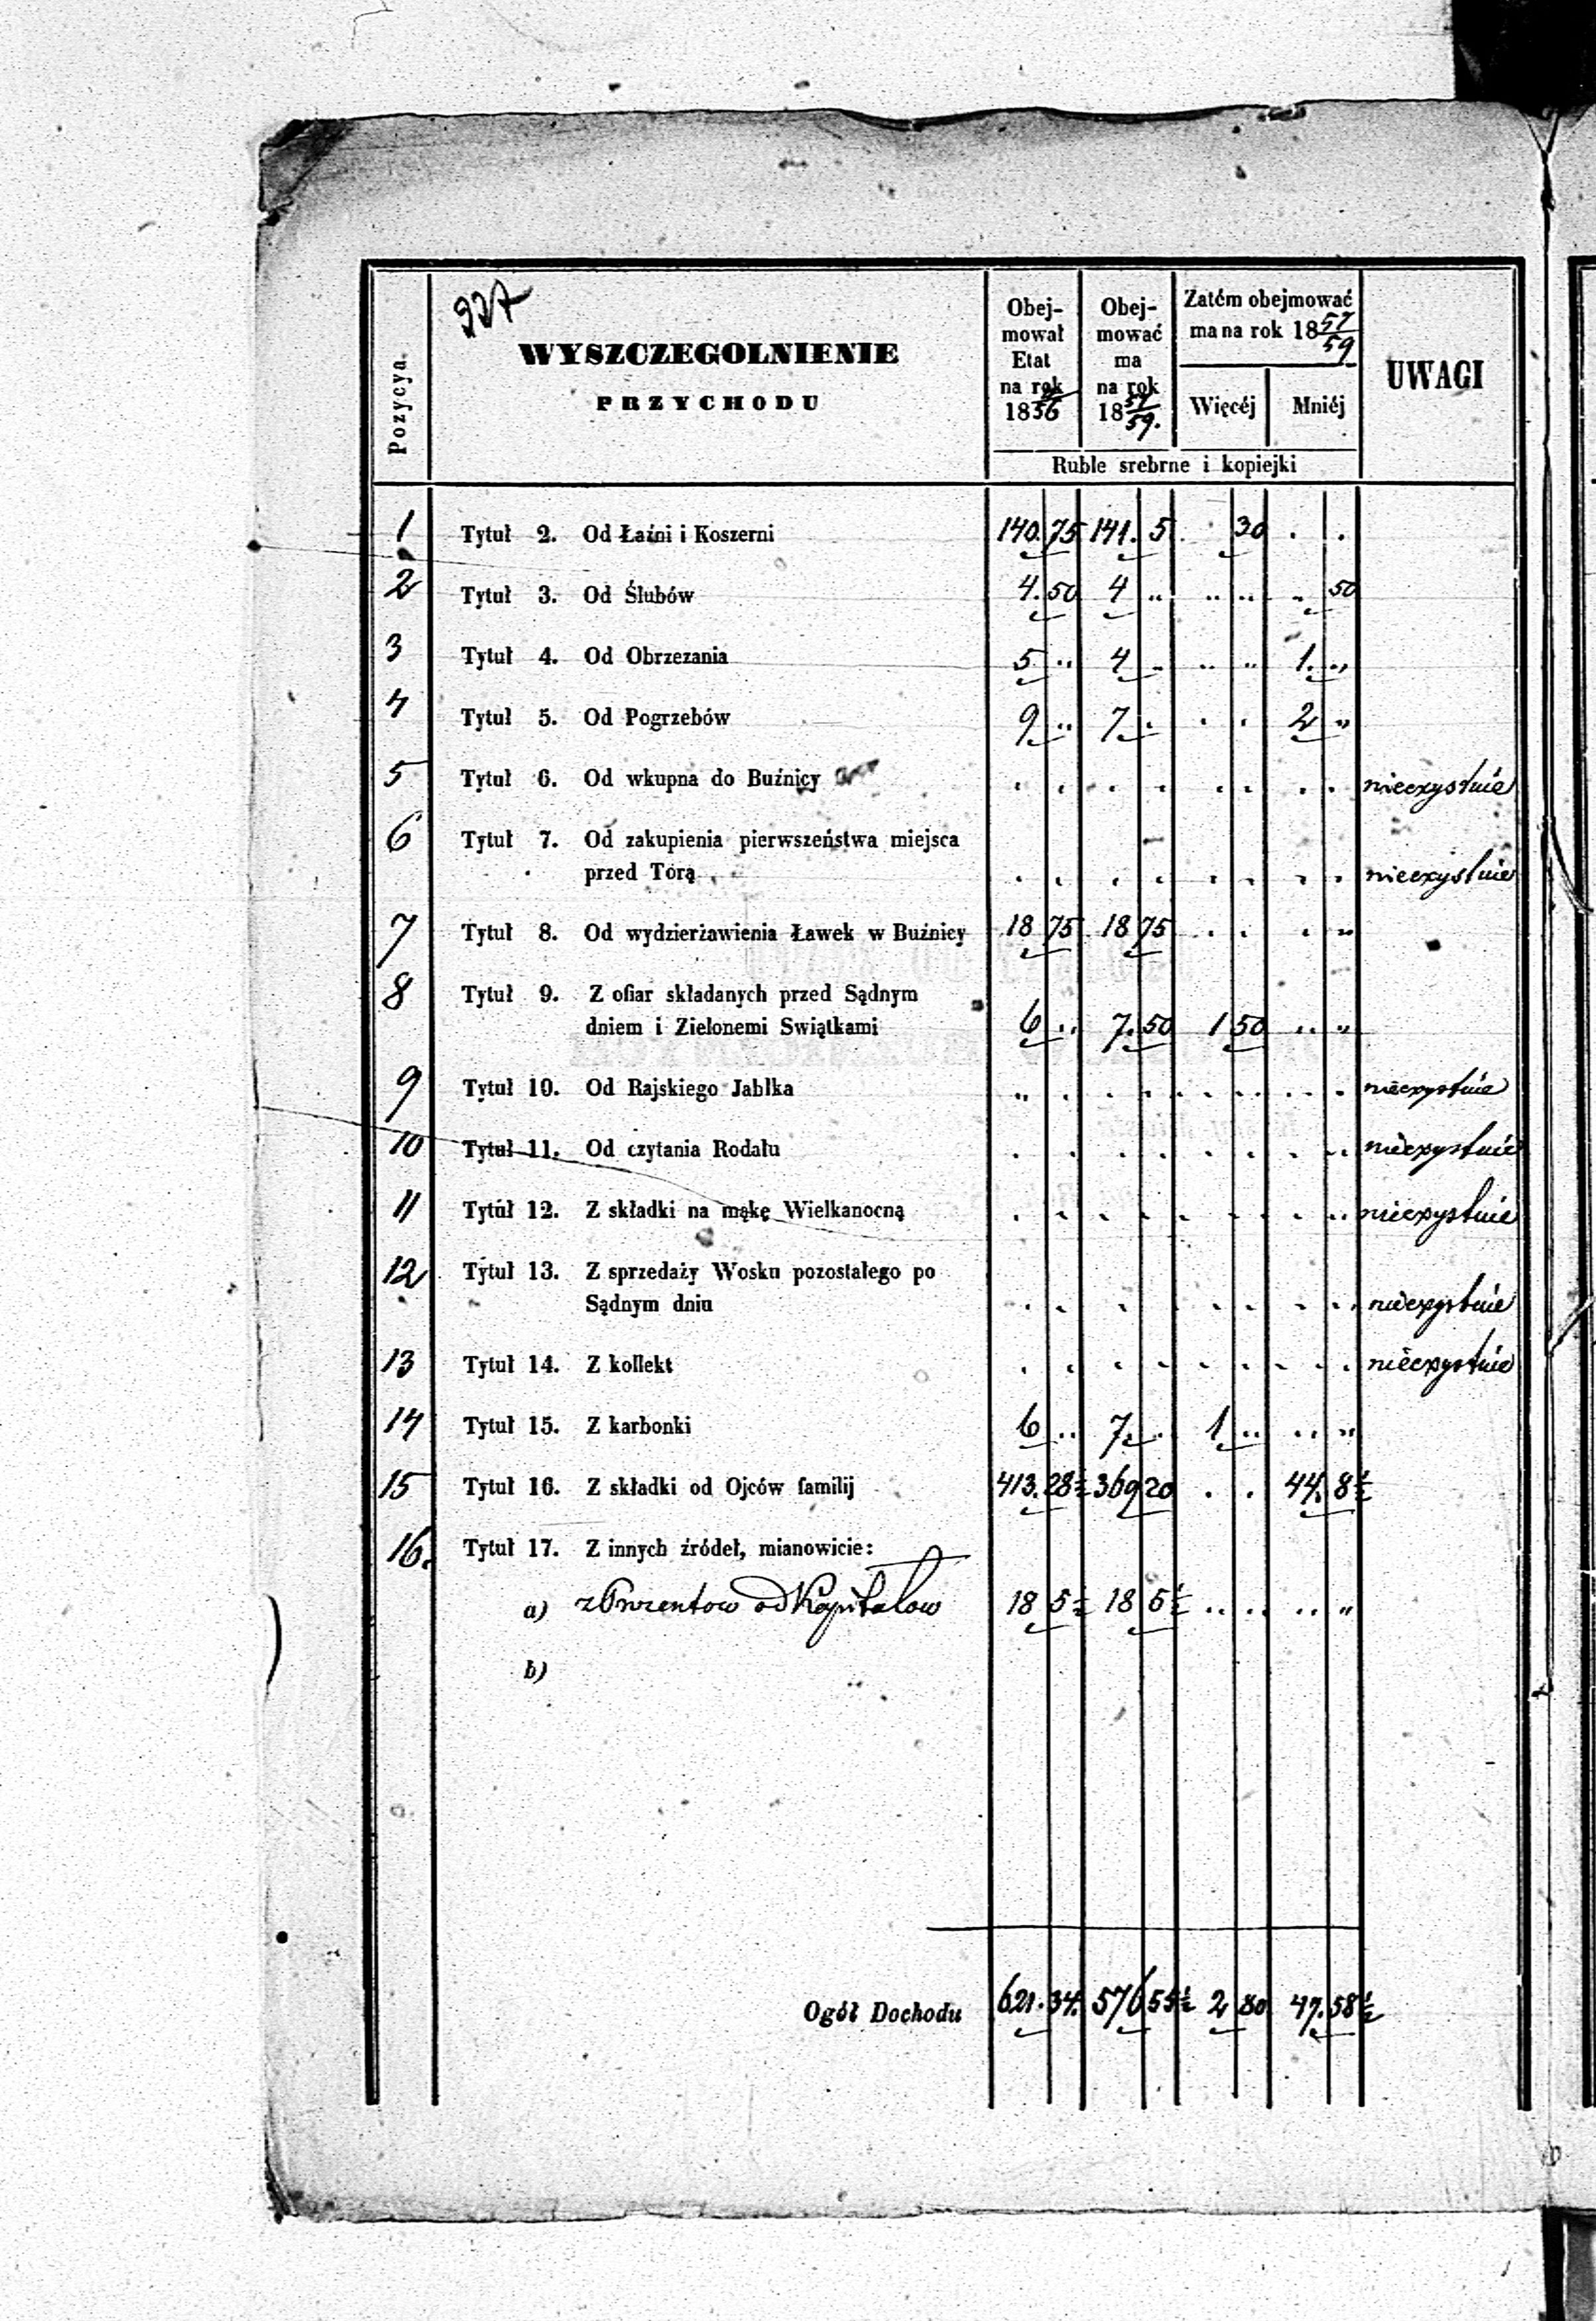 227
WYSZCZEGOLNIENIE
PRZYCHODU
Pozycya
Obej-
mował
Etat
na rok
1856
Obej-
mować
ma
na rok
18 57/59.
Zatém obejmować
ma na rok 18 57/59
Więcéj Mniéj
Ruble srebrne i kopiejki
UWAGI
1 Tytuł 2. Od Łaźni i Koszerni 140. 75 141. 5 . 30 . .
2 Tytuł 3. Od Ślubów 4. 50 4 .. .. .. .. 50
3 Tytuł 4. Od Obrzezania 5 .. 4 .. .. .. 1. ..
4 Tytuł 5. Od Pogrzebów 9 .. 7 . . . 2 ..
5 Tytuł 6. Od wkupna do Buźnicy . . . . . . . . nieexystuie
6 Tytuł 7. Od zakupienia pierwszeństwa miejsca
przed Torą . . . . . . . . nieexystuie
7 Tytuł 8. Od wydzierżawienia Ławek w Buźnicy 18 75 18 75 . . . ..
8 Tytuł 9. Z ofiar składanych przed Sądnym
dniem i Zielonemi Swiątkami 6 .. 7. 50 1 50 .. ..
9 Tytuł 10. Od Rajskiego Jabłka .. . . . . . . . nieexystuie
10 Tytuł 11. Od czytania Rodału . . . . . . . . nieexystuie
11 Tytuł 12. Z składki na mąkę Wielkanocną . . . . . . . . nieexystuie
12 Tytuł 13. Z sprzedaży Wosku pozostałego po
Sądnym dniu . . . . . . . . nieexystuie
13 Tytuł 14. Z kollekt . . . . . . . . nieexystuie
14 Tytuł 15. Z karbonki 6 .. 7. . 1 .. .. ..
15 Tytuł 16. Z składki od Ojców familij 413. 28½ 369 20 . . 44. 8½
16. Tytuł 17. Z innych źródeł, mianowicie:
a) z Procentow od Kapitałow 18 5½ 18 5½ .. .. .. ..
b)
Ogół Dochodu 621. 34. 576 55½ 2 80 47. 58½